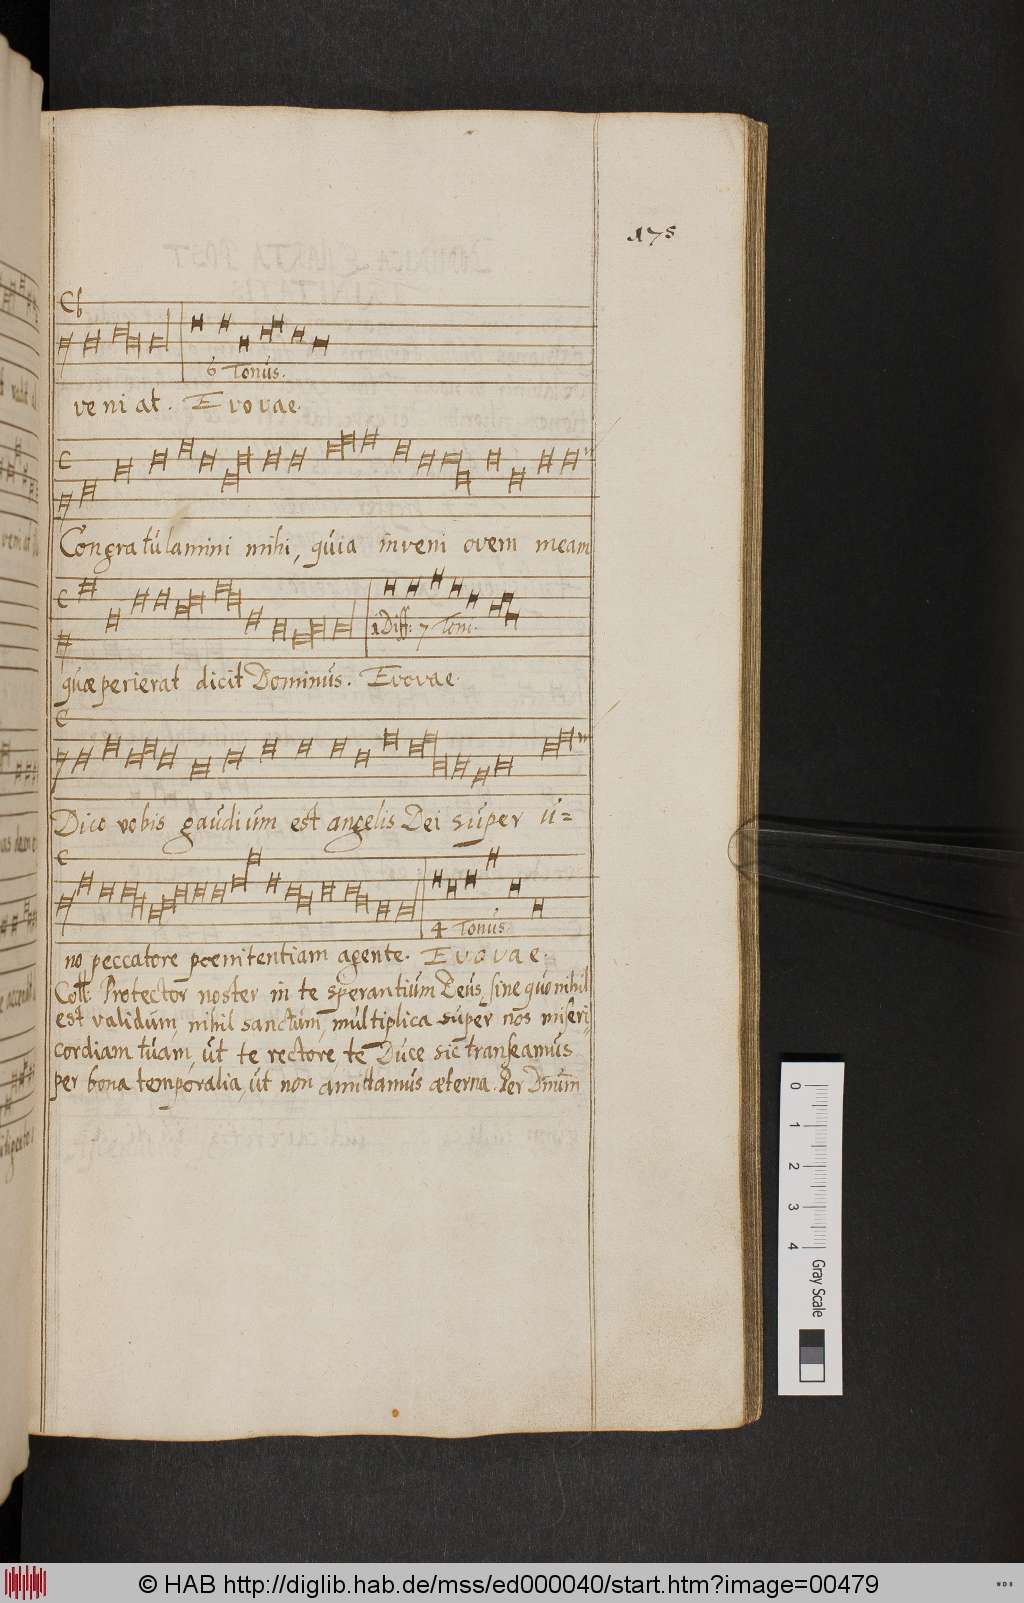 175
6 Tonus.
veniat. Evovae.
Congratulamini mihi, quia inveni ovem meam
1 Diff: 7 Toni.
quæ perierat dicit Dominus. Evovae.
Dico vobis gaudium est angelis Dei super u=
4 Tonus
no peccatore poenitentiam agente. Evovae.
Coll: Protector noster in te sperantium Deus, sine quo nihil
est validum, nihil sanctum, multiplica super nos miseri
cordiam tuam, ut te rectore te Duce sic transeamus
per bona temporalia, ut non amittamus æterna. Per Dnum
0
1
2
3
4
Gray Scale
© HAB http://diglib.hab.de/mss/ed000040/start.htm?image=00479